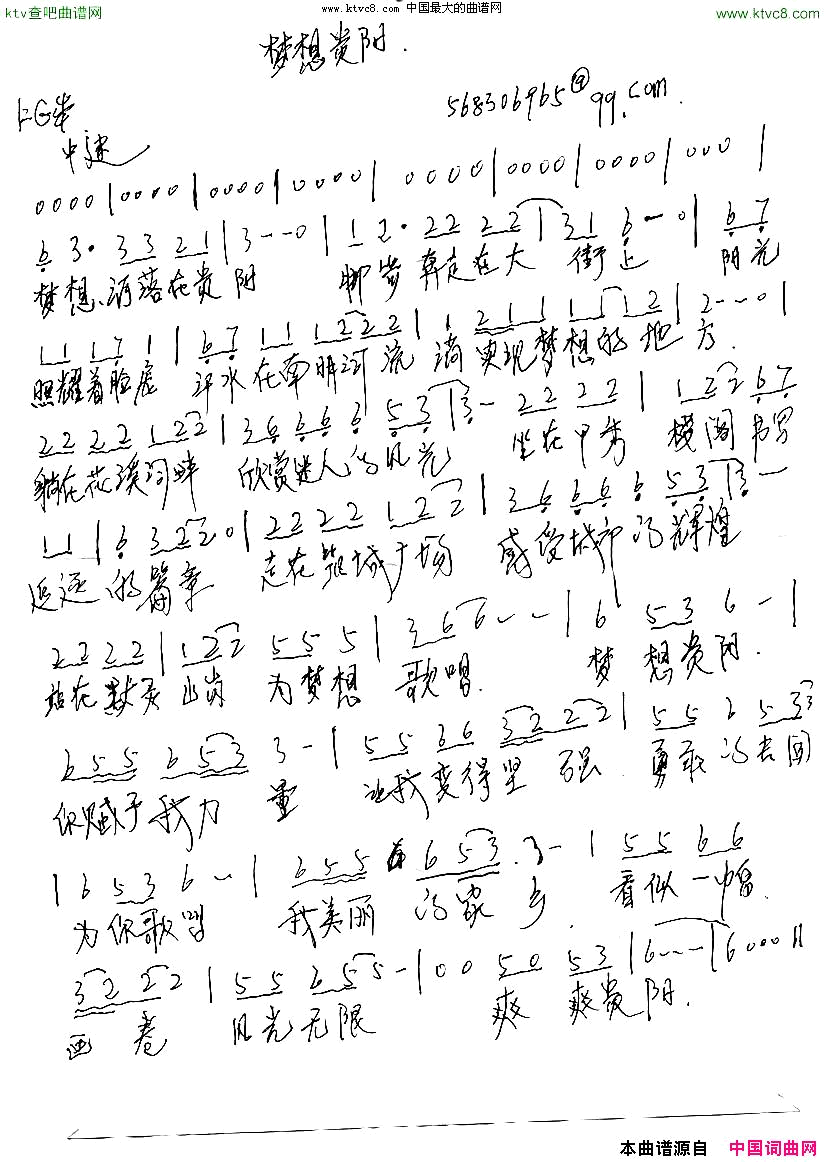 ktv查吧曲谱网 www.ktvc8.com 中国最大的曲谱网 www.ktvc8.com
www.ktvc8.com
梦想贵阳.
568306965@qq.com.
1=G
中速
0000|0000|0000|0000| 0000|0000|0000|000|
6 3· 33 21|3--0|1 2· 22 22|31 6--0|67
梦想洒落在贵阳 脚步奔走在大 街上 阳光
11 17 1|67 11 122 2|1 211 11 12|2---0|
照耀着脸庞 汗水在南明河流淌 实现梦想的地方.
22 22 122|36 66 6 53|3- 22 22|122 67
躺在花溪河畔 欣赏迷人的风光 坐在甲秀 楼阁书写
11|6 3220|22 22 122|36 66 6 53|3-
追逐的篇章 走在筑城广场 感受城市的辉煌
22 22|122 55 5|366--|6 53 6-|
站在黔灵山岗 为梦想 歌唱. 梦 想贵阳.
655 653 3-|55 66 32 22|55 6 533
你赋予我力 量 让我变得坚 强. 勇敢的去闯
|6 53 6-|655 653 3-|55 66
为你歌唱 我美丽 的家 乡. 看似一幅
32 22|55 655-|00 50 53|6---|6000‖
画 卷 风光无限 爽 爽贵阳.
本曲谱源自 中国词曲网